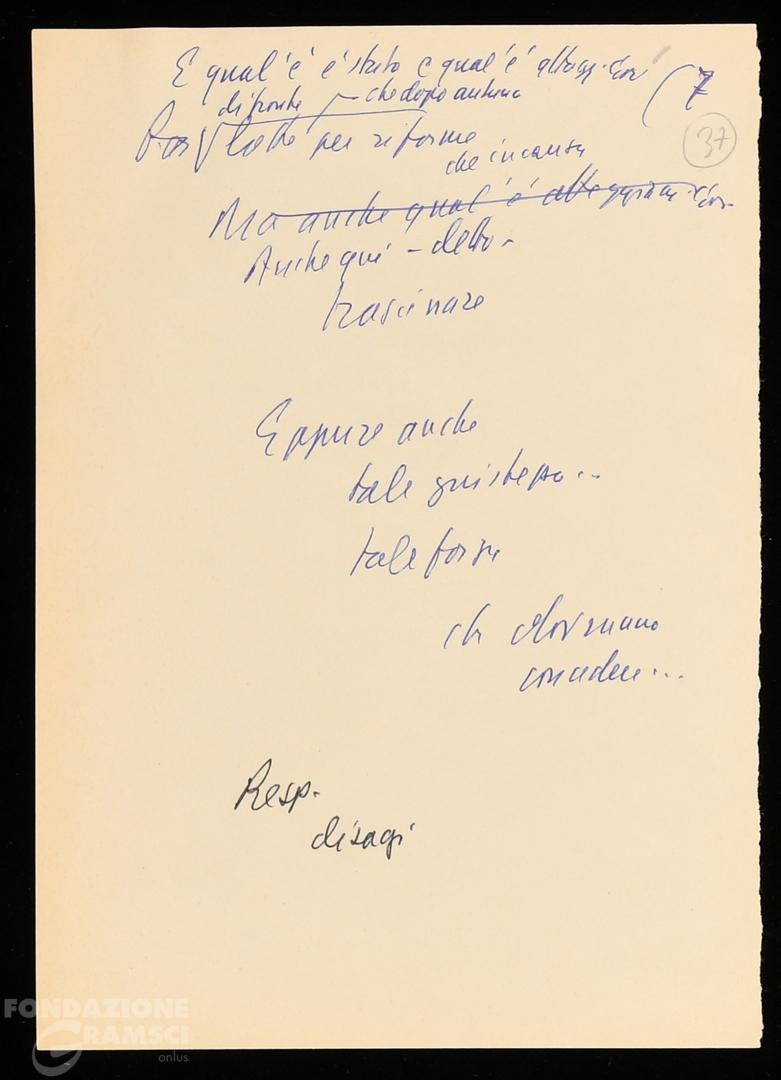 E qual'è è stato e qual'è atteggi. Gov (7
di fronte che dopo autunno
lotte per riforme 37
che incauta
Ma anche qual'è atteggiam. Gov.
Anche qui - detto -
trascinare
Eppure anche
tale giustezza...
tale forza
che dovranno
concedere...
Resp.
disagi
FONDAZIONE
GRAMSCI
onlus